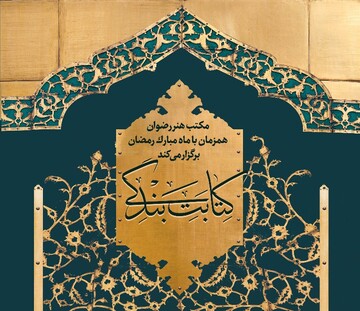 مکتب هنر رضوان
همزمان با ماه مبارک رمضان
برگزار می‌کند
کتابت بندگی